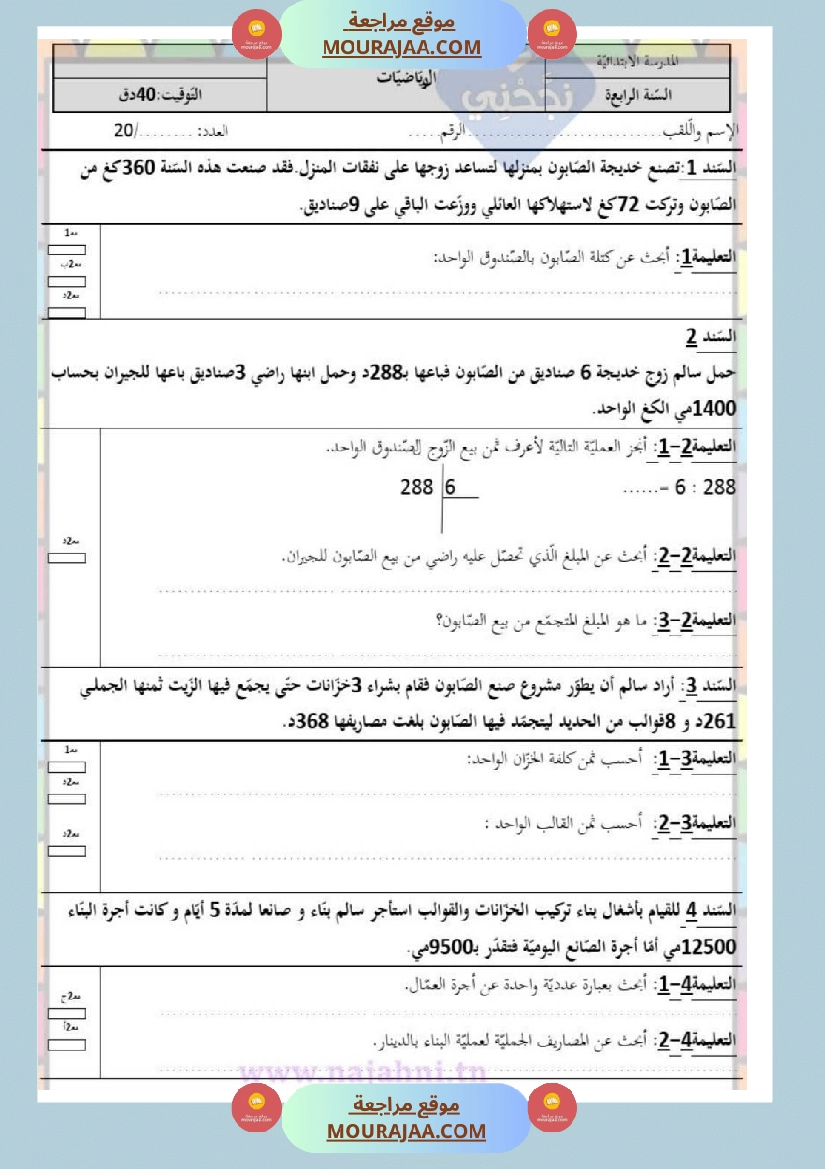 موقع مراجعة
MOURAJAA.COM
المدرسة الابتدائيّة
الرياضيّات
السّنة الرابعة
التّوقيت:40دق
نجّحْنِي
الإسم واللّقب...........................الرقم.....
العدد: ......../20
السّند 1:تصنع خديجة الصّابون بمنزلها لتساعد زوجها على نفقات المنزل.فقد صنعت هذه السّنة 360كغ من
الصّابون وتركت 72كغ لاستهلاكها العائلي ووزّعت الباقي على 9صناديق.
مع1
مع2ب
مع2د
التعليمة1: أبحث عن كتلة الصّابون بالصّندوق الواحد:
السّند 2
حمل سالم زوج خديجة 6 صناديق من الصّابون فباعها ب288د وحمل ابنها راضي 3صناديق باعها للجيران بحساب
1400مي الكغ الواحد.
التعليمة2-1: أنجز العمليّة التاليّة لأعرف ثمن بيع الزّوج للصّندوق الواحد.
288 : 6 =......
288 6
مع2د
التعليمة2-2: أبحث عن المبلغ الّذي تحصّل عليه راضي من بيع الصّابون للجيران.
التعليمة2-3: ما هو المبلغ المتجمّع من بيع الصّابون؟
السّند 3: أراد سالم أن يطوّر مشروع صنع الصّابون فقام بشراء 3خزّانات حتّى يجمّع فيها الزّيت ثمنها الجملي
261د و 8قوالب من الحديد ليتجمّد فيها الصّابون بلغت مصاريفها 368د.
مع1
مع2د
مع2د
التعليمة3-1: أحسب ثمن كلفة الخزّان الواحد:
التعليمة3-2: أحسب ثمن القالب الواحد :
السّند 4 للقيام بأشغال بناء تركيب الخزّانات والقوالب استأجر سالم بنّاء و صانعا لمدّة 5 أيّام وكانت أجرة البنّاء
12500مي أمّا أجرة الصّانع اليوميّة فتقدّر ب9500مي.
مع2ج
مع2أ
التعليمة4-1: أبحث بعبارة عدديّة واحدة عن أجرة العمّال.
التعليمة4-2: أبحث عن المصاريف الجمليّة لعمليّة البناء بالدينار.
www.najahni.tn
موقع مراجعة
MOURAJAA.COM